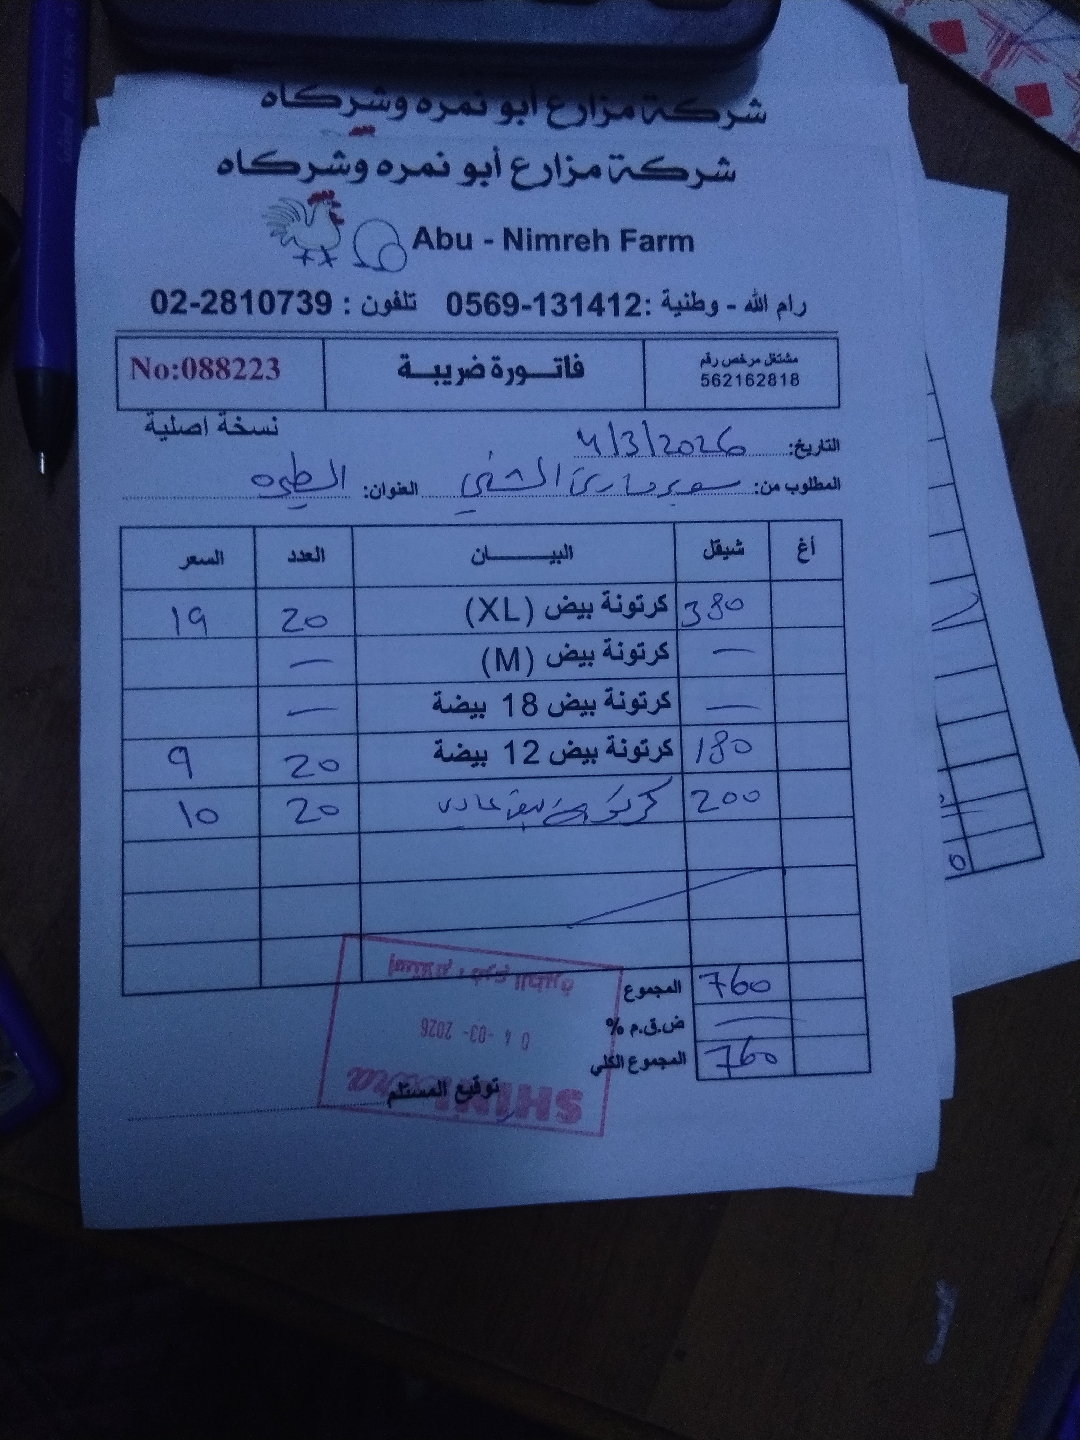 شركة مزارع أبو نمره وشركاه
شركة مزارع أبو نمره وشركاه
Abu - Nimreh Farm
رام الله - وطنية :0569-131412 تلفون : 02-2810739
مشتغل مرخص رقم
562162818
فاتـــورة ضريبة
No:088223
نسخة اصلية
التاريخ: 4/3/2026
المطلوب من: سوبر ماركت الشني العنوان: الطيره
أغ شيقل البيــــــان العدد السعر
380 كرتونة بيض (XL) 20 19
— كرتونة بيض (M) —
— كرتونة بيض 18 بيضة —
180 كرتونة بيض 12 بيضة 20 9
200 كرتونة بيض عادي 20 10
المجموع 760
ض.ق.م % —
المجموع الكلي 760
توقيع المستلم
SHINI extra
04-03-2026
إستلام : فرع الطيرة